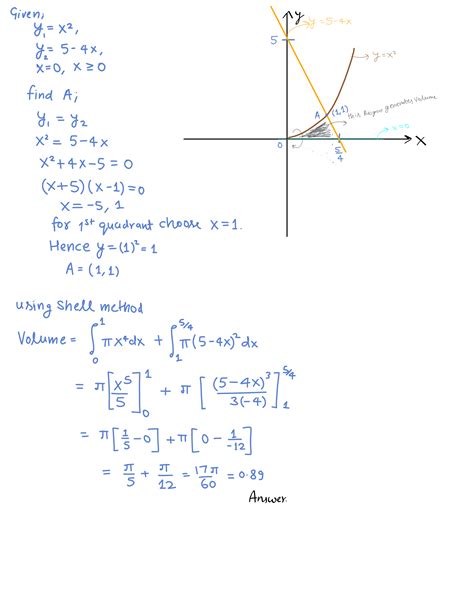 Given,
y₁ = x²,
y₂ = 5 - 4x,
x=0, x ≥ 0
find A;
y₁ = y₂
x² = 5 - 4x
x² + 4x - 5 = 0
(x+5)(x-1) = 0
x = -5, 1
for 1st quadrant choose x = 1.
Hence y = (1)² = 1
A = (1, 1)
y
y = 5-4x
5
y = x²
A
(1,1)
this region generates volume
0
5/4
x
using Shell method
Volume = ∫₀¹ πx⁴dx + ∫₁^(5/4) π(5-4x)² dx
= π[x⁵/5]₀¹ + π[(5-4x)³/3(-4)]₁^(5/4)
= π[1/5 - 0] + π[0 - 1/-12]
= π/5 + π/12 = 17π/60 = 0.89
Answer.